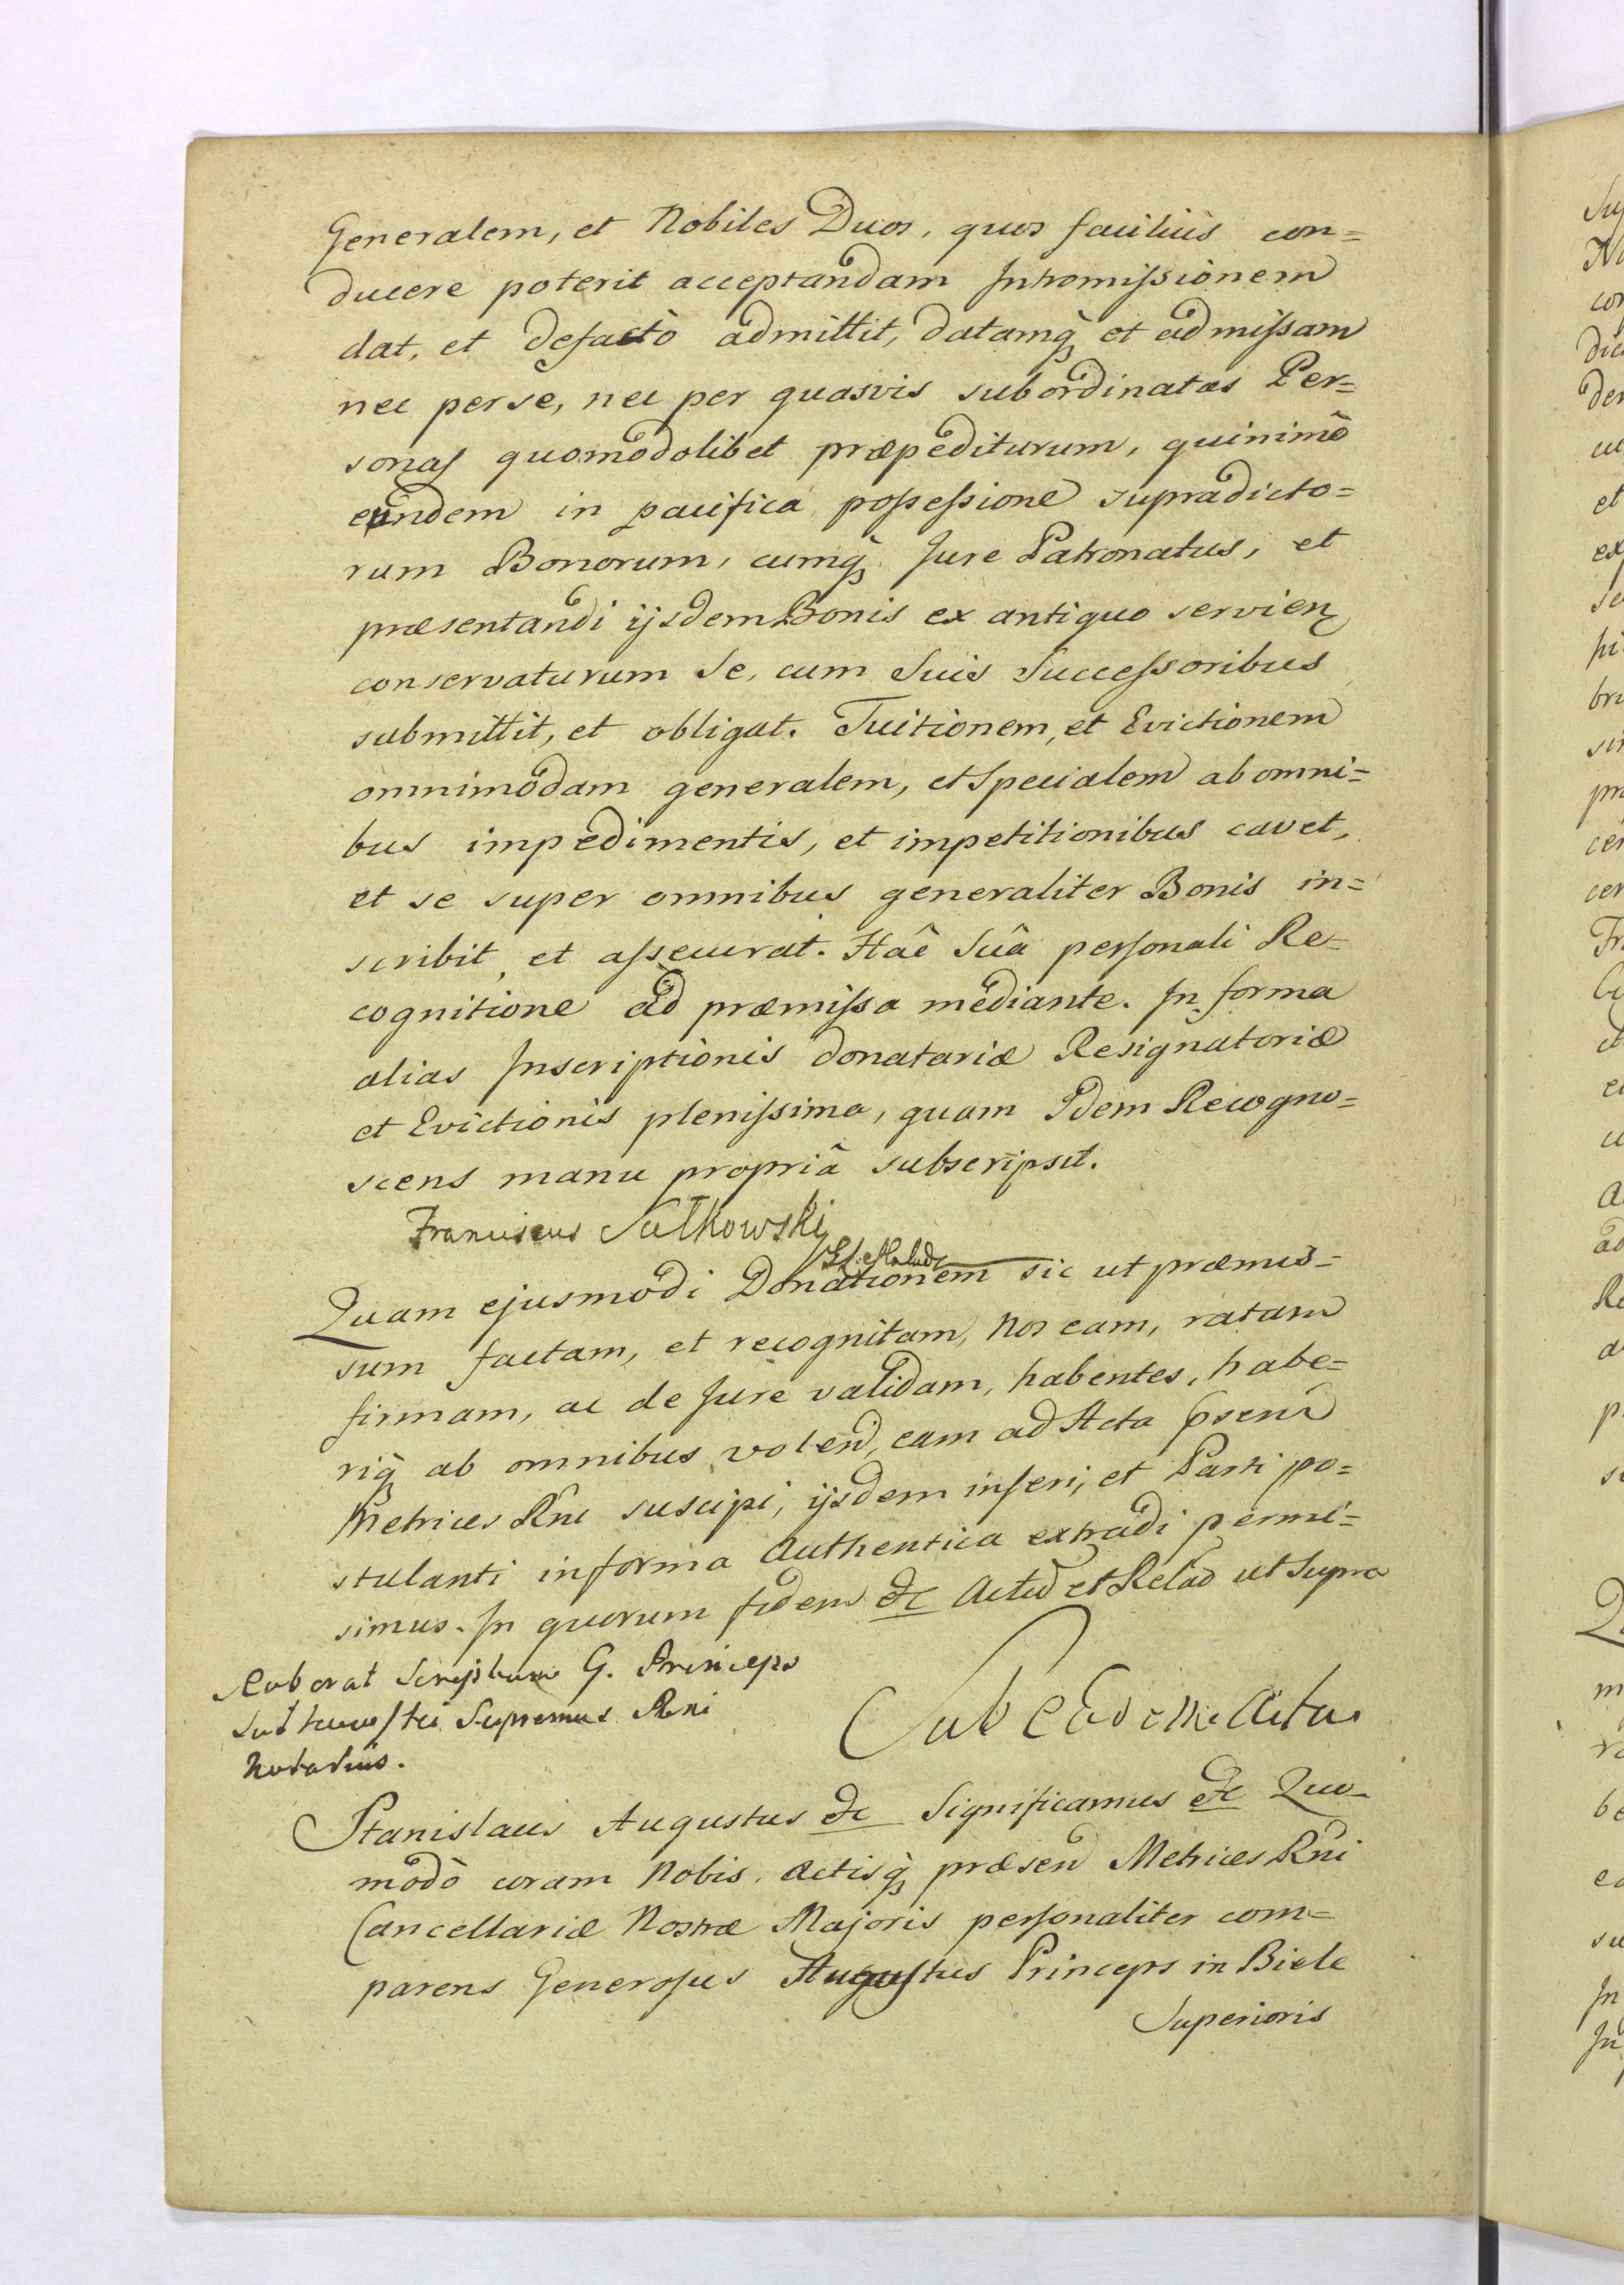 Generalem, et Nobiles Duos, quos faciliùs con=
ducere poterit acceptandam Intromissionem
dat, et defactò admittit, datamq̀ et admissam
nec per se, nec per quasvis subordinatas Per=
sonas quomodolibet præpediturum, quinimò
eundem in pacifica possessione supradicto=
rum Bonorum, cumq̀ Jure Patronatus, et
præsentandi ijsdem Bonis ex antiquo servien
conservaturum Se, cum Suis Successoribus
submittit, et obligat. Tuitionem, et Evictionem
omnimodam generalem, et Specialem ab omni=
bus impedimentis, et impetitionibus cavet,
et se super omnibus generaliter Bonis in=
scribit, et assecurat. Hâc Suâ personali Re=
cognitione ad præmissa mediante. In forma
alias Inscriptionis donatariæ Resignatoriæ
et Evictionis plenissima, quam Idem Recogno=
scens manu propriâ subscripsit.
Franciscus Sulkowski
Quam ejusmodi Donationem sic ut præmis=
sum factam, et recognitam, Nos eam, ratam
firmam, ac de Jure validam, habentes, habe=
riq̀ ab omnibus volen, eam ad Acta psen
Metrices Rni suscipi, ijsdem inseri, et Parti po=
stulanti in forma Authentica extradi permi=
simus. In quorum fidem &c Actu et Relão ut Supra
Roborat Scriptum G. Princeps
Supremus Rni
Notarius.
Sub eadem Actu
Stanislaus Augustus &c Significamus &c Quo=
modò coram Nobis, Actisq̀ præsen Metrices Rni
Cancellariæ Nostræ Majoris personaliter com=
parens Generosus Augustus Princeps in Biele
Superioris